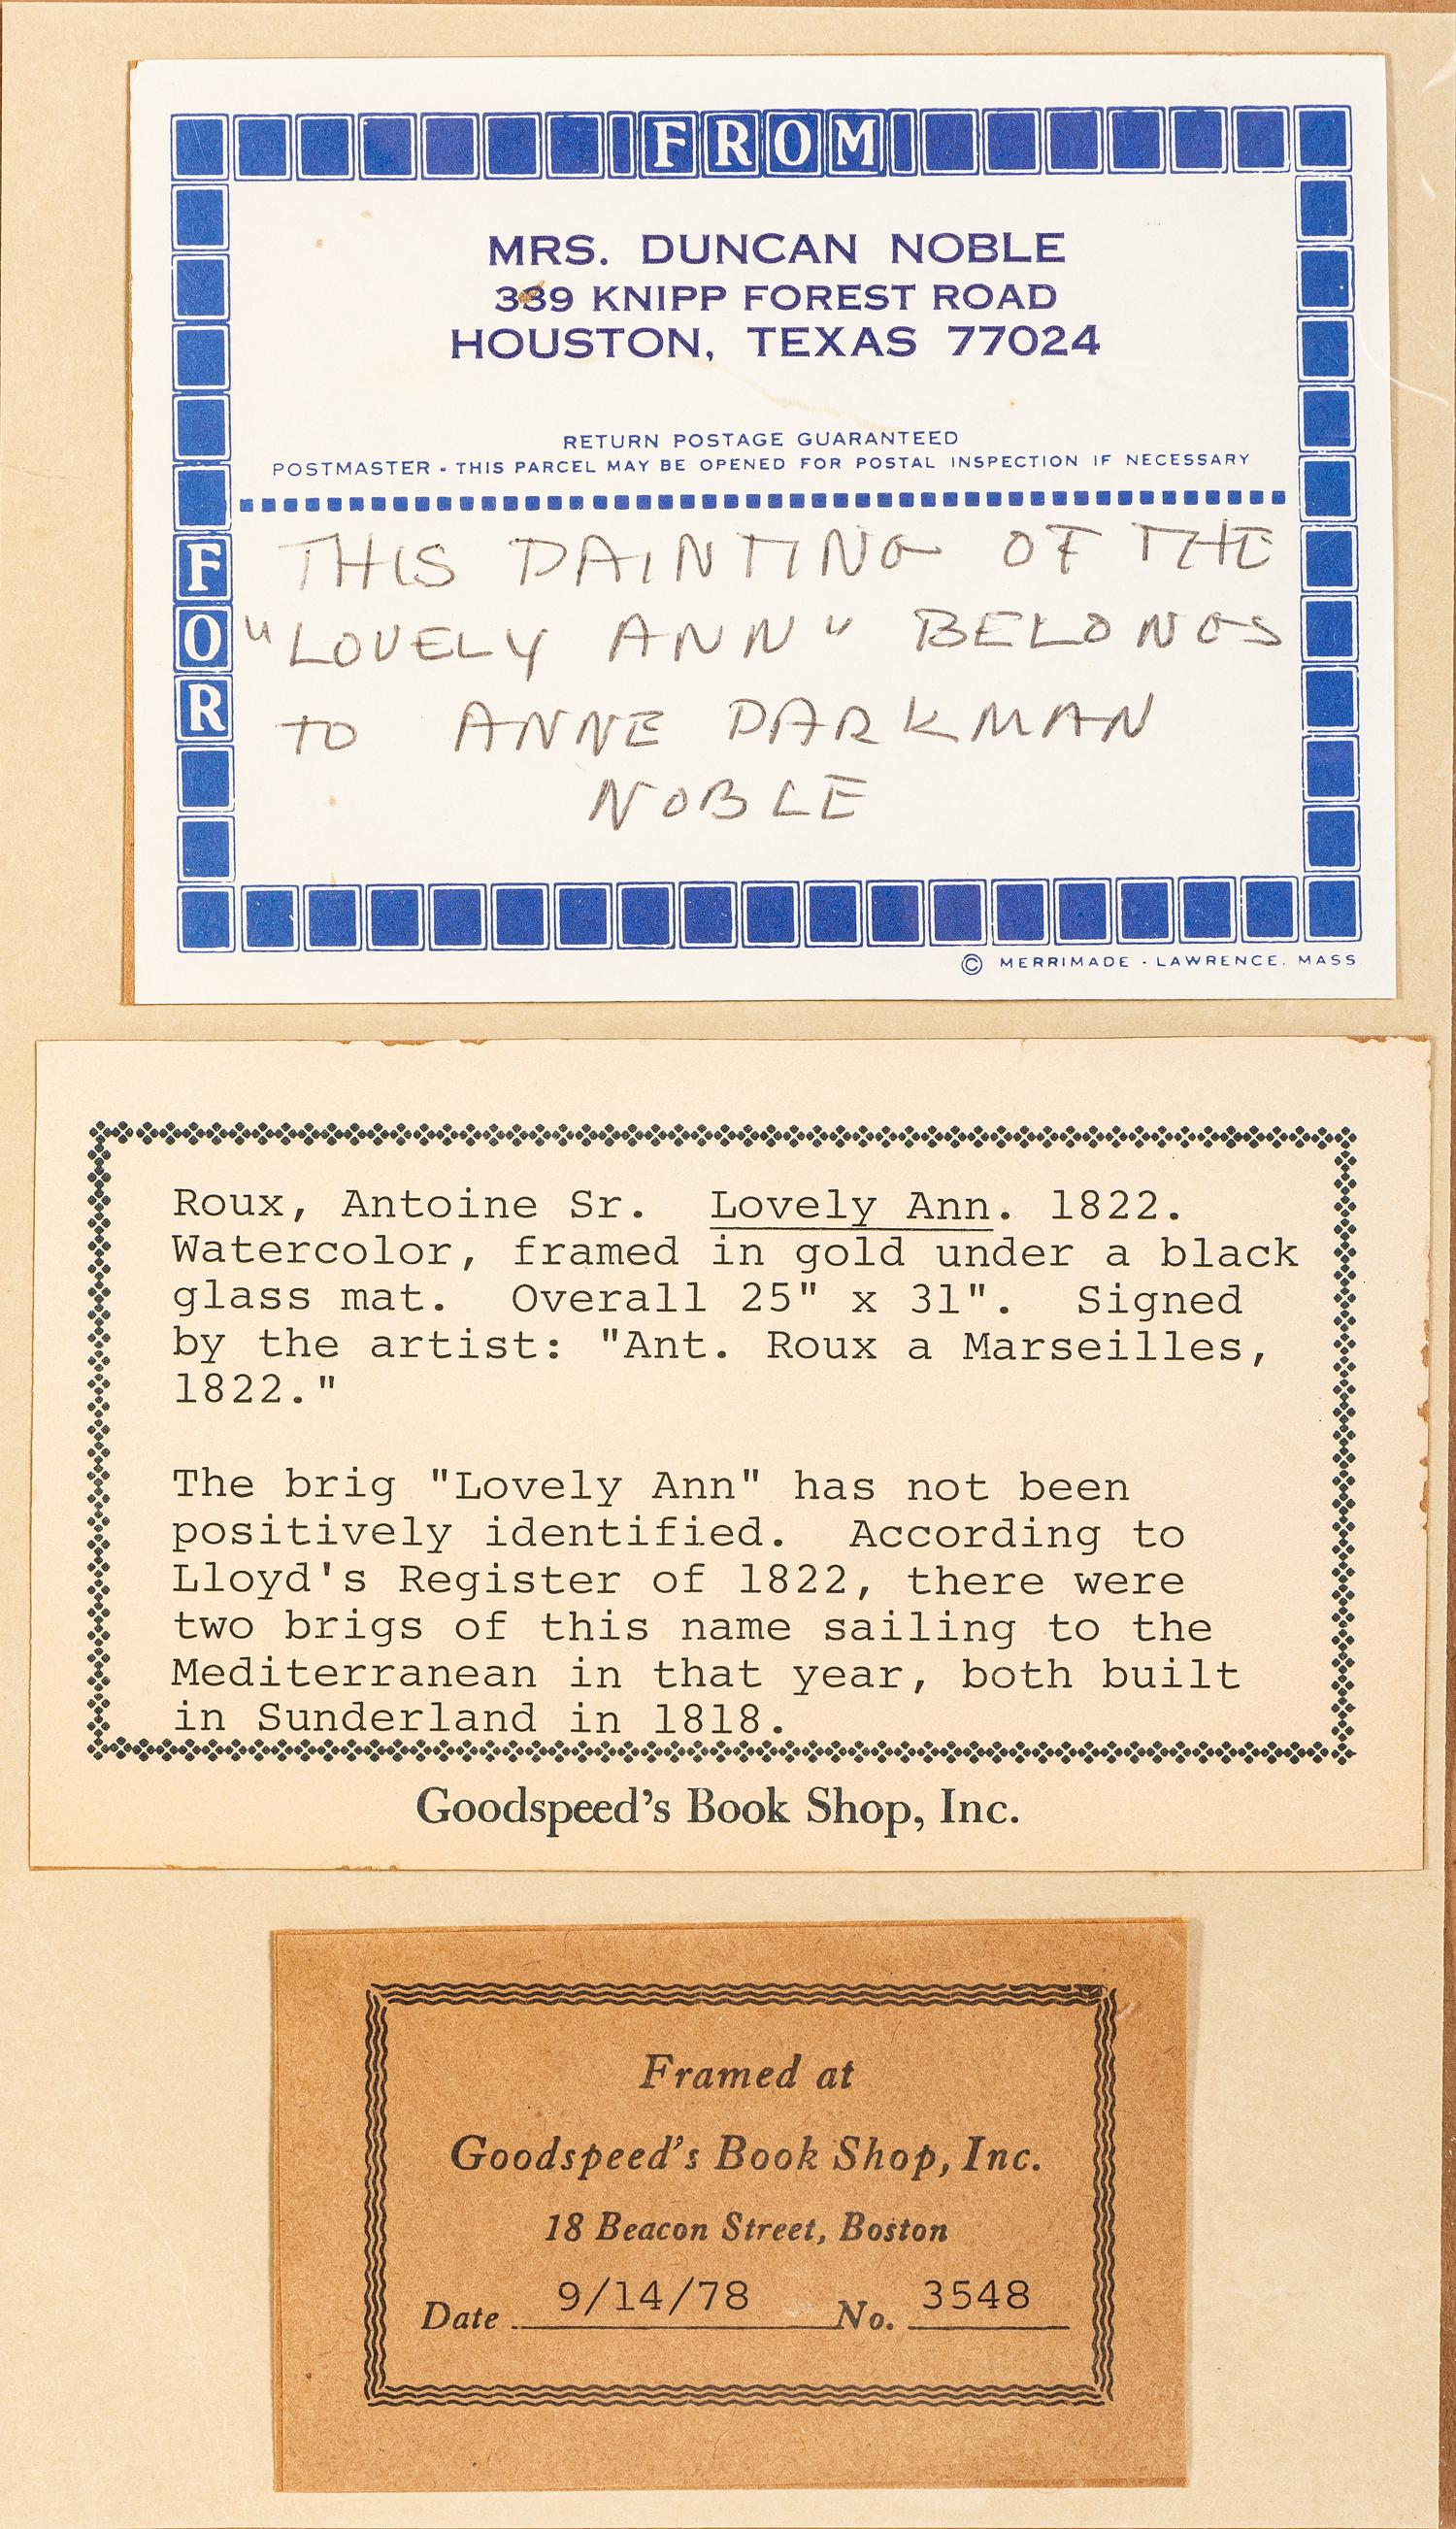 FROM
MRS. DUNCAN NOBLE
339 KNIPP FOREST ROAD
HOUSTON, TEXAS 77024
RETURN POSTAGE GUARANTEED
POSTMASTER - THIS PARCEL MAY BE OPENED FOR POSTAL INSPECTION IF NECESSARY
FOR
THIS PAINTING OF THE
"LOVELY ANN" BELONGS
TO ANNE PARKMAN
NOBLE
© MERRIMADE - LAWRENCE. MASS
Roux, Antoine Sr. Lovely Ann. 1822.
Watercolor, framed in gold under a black
glass mat. Overall 25" x 31". Signed
by the artist: "Ant. Roux a Marseilles,
1822."
The brig "Lovely Ann" has not been
positively identified. According to
Lloyd's Register of 1822, there were
two brigs of this name sailing to the
Mediterranean in that year, both built
in Sunderland in 1818.
Goodspeed's Book Shop, Inc.
Framed at
Goodspeed's Book Shop, Inc.
18 Beacon Street, Boston
Date 9/14/78 No. 3548